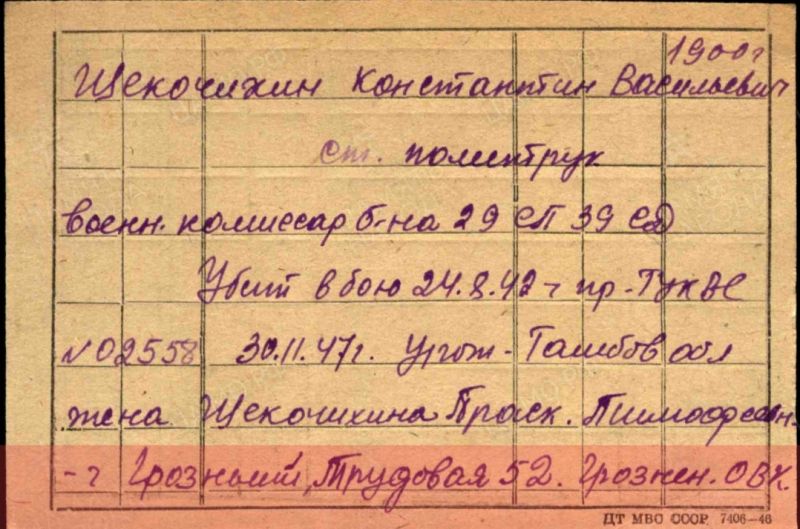 1900г
Щекочихин Константин Васильевич
ст. политрук
военн. комиссар б-на 29 СП 39 СД
Убит в бою 24.8.42 г пр-ГУК ВС
№ 02558 30.11.47г. Тамбов обл
жена Щекочихина Праск. Тимофеевн.
-г Грозный, Трудовая 52. Грознен. ОВК.
ДТ МВС СССР 7406—46